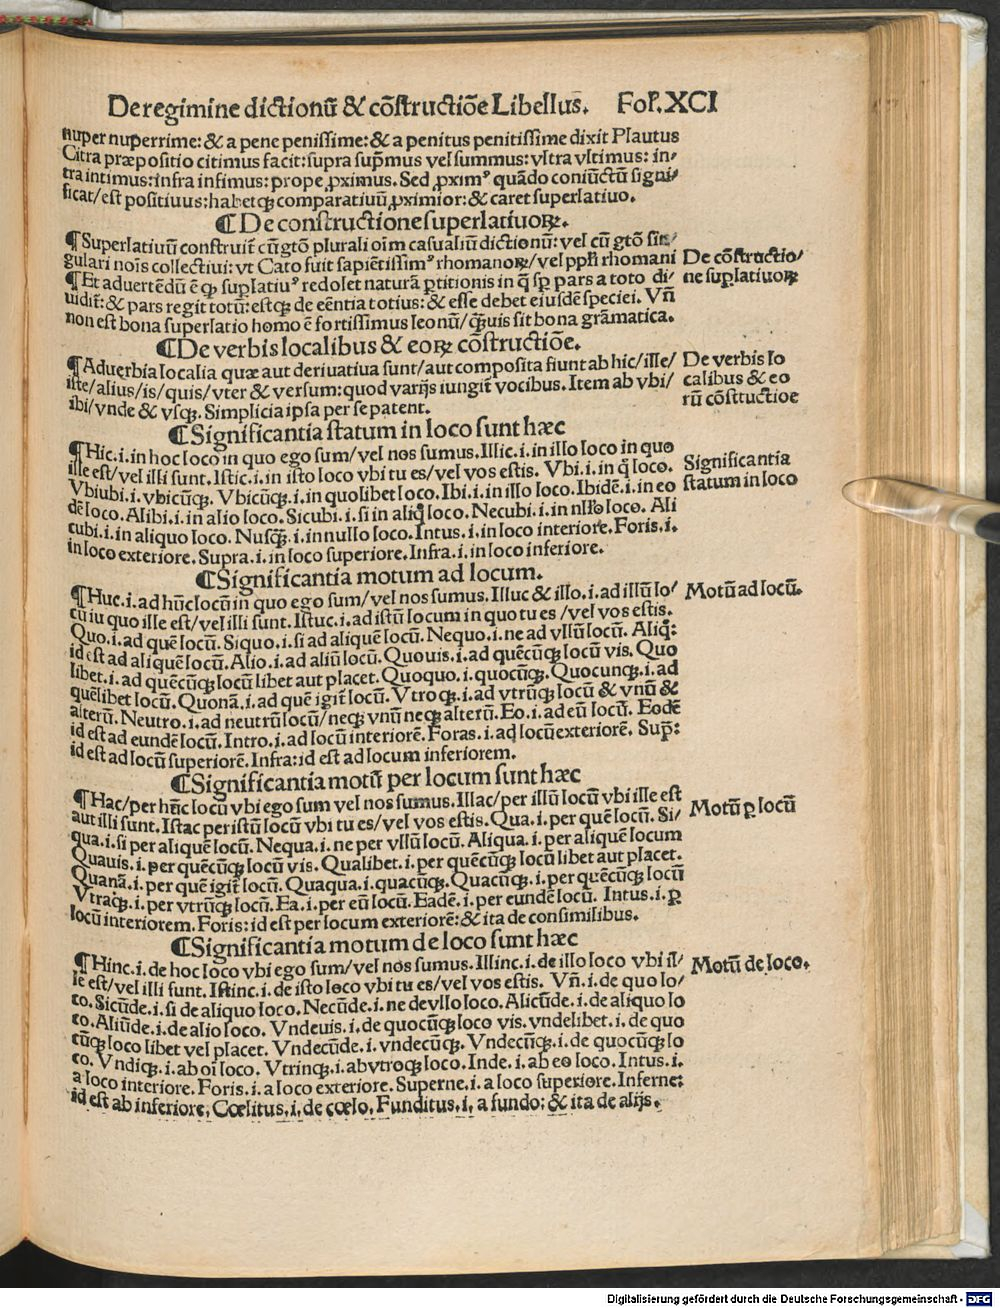 De regimine dictionū & cōstructiōe Libellus. Fol. XCI
nuper nuperrime: & a pene penissime: & a penitus penitissime dixit Plautus
Citra præpositio citimus facit: supra sup̄mus vel summus: vltra vltimus: in/
tra intimus: infra infimus: prope ꝓximus. Sed ꝓximꝰ quādo coniūctū signi/
ficat/est positiuus: habetqꝫ comparatiuū ꝓximior: & caret superlatiuo.
¶ De constructione superlatiuoꝝ.
¶ Superlatiuū construit̄ cū gtō plurali oīm casualiū dictionū: vel cū gtō sin/
gulari noīs collectiui: vt Cato fuit sapiētissimꝰ rhomanoꝝ/vel ppl̄i rhomani
De cōstructio/
ne suꝑlatiuoꝝ
¶ Et aduertēdū ē qꝫ suꝑlatiuꝰ redolet naturā ꝑtitionis in q̄ sꝑ pars a toto di/
uidit̄: & pars regit totū: estqꝫ de eēntia totius: & esse debet eiusdē speciei. Vn̄
non est bona superlatio homo ē fortissimus leonū/qꝫuis sit bona grāmatica.
¶ De verbis localibus & eoꝝ cōstructiōe.
¶ Aduerbia localia quæ aut deriuatiua sunt/aut composita fiunt ab hic/ille/
iste/alius/is/quis/vter & versum: quod varijs iungit̄ vocibus. Item ab vbi/
ibi/vnde & vsqꝫ. Simplicia ipsa per se patent.
De verbis lo
calibus & eo
rū cōstructioe
¶ Significantia statum in loco sunt hæc
¶ Hic.i.in hoc loco in quo ego sum/vel nos sumus. Illic.i.in illo loco in quo
ille est/vel illi sunt. Istic.i.in isto loco vbi tu es/vel vos estis. Vbi.i.in q̄ loco.
Vbiubi.i.vbicūqꝫ. Vbicūqꝫ.i.in quolibet loco. Ibi.i.in illo loco. Ibidē.i.in eo
dē loco. Alibi.i.in alio loco. Sicubi.i.si in aliq̄ loco. Necubi.i.in nllo loco. Ali
cubi.i.in aliquo loco. Nusqꝫ.i.in nullo loco. Intus.i.in loco interiore. Foris.i.
in loco exteriore. Supra.i.in loco superiore. Infra.i.in loco inferiore.
Significantia
statum in loco
¶ Significantia motum ad locum.
¶ Huc.i.ad hūc locū in quo ego sum/vel nos sumus. Illuc & illo.i.ad illū lo/
cū iu quo ille est/vel illi sunt. Istuc.i.ad istū locum in quo tu es/vel vos estis.
Quo.i.ad quē locū. Siquo.i.si ad aliquē locū. Nequo.i.ne ad vllū locū. Aliq̄:
id est ad aliquē locū. Alio.i.ad aliū locū. Quouis.i.ad quēcūqꝫ locū vis. Quo
libet.i.ad quēcūqꝫ locū libet aut placet. Quoquo.i.quocūqꝫ. Quocunqꝫ.i.ad
quēlibet locū. Quonā.i.ad quē igit̄ locū. Vtroqꝫ.i.ad vtrūqꝫ locū & vnū &
alterū. Neutro.i.ad neutrū locū/neqꝫ vnū neqꝫ alterū. Eo.i.ad eū locū. Eodē
id est ad eundē locū. Intro.i.ad locū interiorē. Foras.i.ad locū exteriorē. Sup̄:
id est ad locū superiorē. Infra: id est ad locum inferiorem.
Motū ad locū.
¶ Significantia motū per locum sunt hæc
¶ Hac/per hūc locū vbi ego sum vel nos sumus. Illac/per illū locū vbi ille est
aut illi sunt. Istac per istū locū vbi tu es/vel vos estis. Qua.i.per quē locū. Si/
qua.i.si per aliquē locū. Nequa.i.ne per vllū locū. Aliqua.i.per aliquē locum
Quauis.i.per quēcūqꝫ locū vis. Qualibet.i.per quēcūqꝫ locū libet aut placet.
Quanā.i.per quē igit̄ locū. Quaqua.i.quacūqꝫ. Quacūqꝫ.i.per quēcūqꝫ locū
Vtraqꝫ.i.per vtrūqꝫ locū. Ea.i.per eū locū. Eadē.i.per eundē locū. Intus.i.ꝑ
locū interiorem. Foris: id est per locum exteriorē: & ita de consimilibus.
Motū ꝑ locū
¶ Significantia motum de loco sunt hæc
¶ Hinc.i.de hoc loco vbi ego sum/vel nos sumus. Illinc.i.de illo loco vbi il/
le est/vel illi sunt. Istinc.i.de isto loco vbi tu es/vel vos estis. Vn̄.i.de quo lo/
co. Sicūde.i.si de aliquo loco. Necūde.i.ne de vllo loco. Alicūde.i.de aliquo lo
co. Aliūde.i.de alio loco. Vndeuis.i.de quocūqꝫ loco vis. vndelibet.i.de quo
cūqꝫ loco libet vel placet. Vndecūde.i.vndecūqꝫ. Vndecūqꝫ.i.de quocūqꝫ lo
co. Vndiqꝫ.i.ab oī loco. Vtrinqꝫ.i.ab vtroqꝫ loco. Inde.i.ab eo loco. Intus.i.
a loco interiore. Foris.i.a loco exteriore. Superne.i.a loco superiore. Inferne:
id est ab inferiore. Cœlitus.i.de cœlo. Funditus.i.a fundo: & ita de alijs.
Motū de loco.
Digitalisierung gefördert durch die Deutsche Forschungsgemeinschaft - DFG